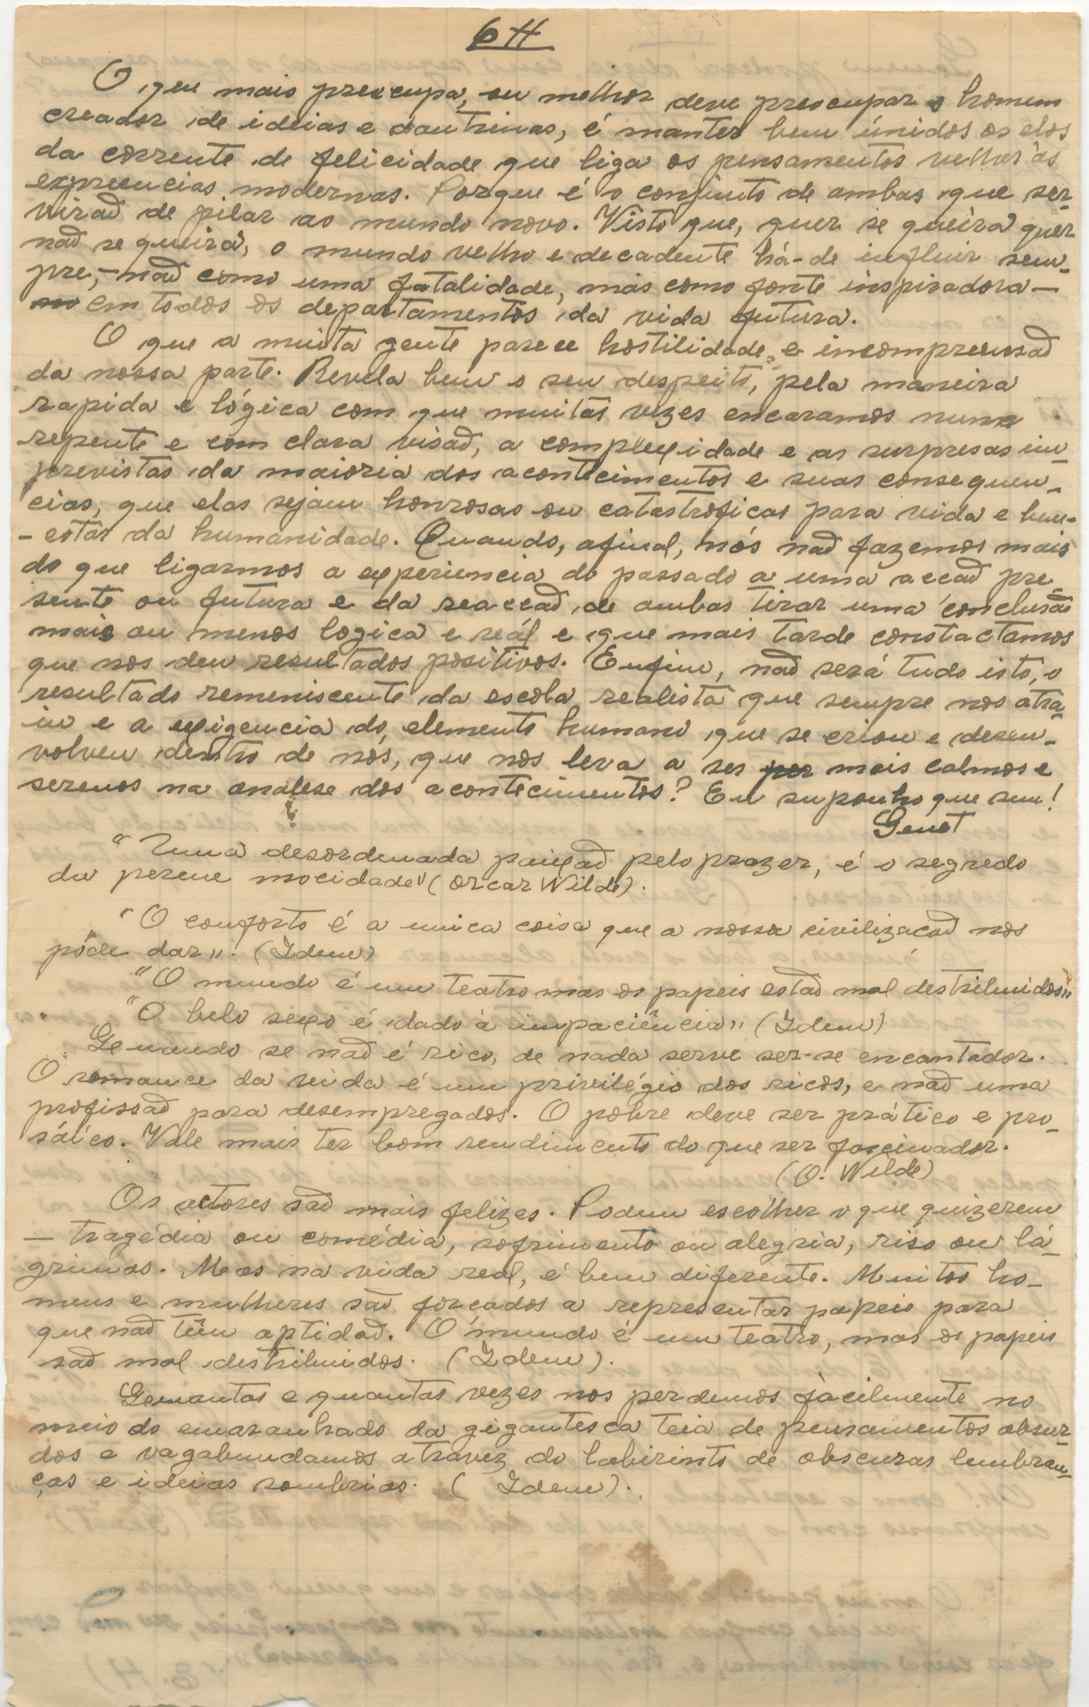 6H
O que mais preocupa, ou melhor deve preocupar o homem
creador de ideias e doutrinas, é manter bem únidos os elos
da corrente de felicidade que liga os pensamentos velhos ás
expreencias modernas. Porque é o conjunto de ambas que ser-
viraõ de pilar ao mundo novo. Visto que, quer se queira quer
naõ se queira, o mundo velho e decadente há-de influir sem-
pre,- naõ como uma fatalidade, mas como fonte inspiradora -
em todos os departamentos da vida futura.
O que a muita gente parece hostilidade, e incompreensaõ
da nossa parte. Revela bem o seu despeito, pela maneira
rapida e lógica com que muitas vezes encaramos num
repente e com clara visaõ, a complexidade e as surpresas im-
previstas da maioria dos acontecimentos e suas consequen-
cias, que elas sejam honrosas ou catastroficas para vida e bem-
-estar da humanidade. Quando, afinal, nós naõ fazemos mais
do que ligarmos a experiencia do passado a uma acçaõ pre-
sente ou futura e da reacçaõ de ambas tirar uma conclusaõ
mais ou menos logica e reál e que mais tarde constactamos
que nos deu resultados positivos. Enfim, naõ será tudo isto, o
resultado remeniscente da escola realista que sempre nos atra-
iu e a exigencia do elemento humano que se criou e desen-
volveu dentro de nós, que nos leva a ser mais calmos e
serenos na analese dos acontecimentos? Eu suponho que sim!
Genet
"Uma desordenada paixaõ pelo prazer, é o segredo
da perene mocidade" (Orcar Wilde).
"O conforto é a unica coisa que a nossa civilizacaõ nos
póde dar". (Idem)
"O mundo é um teatro mas os papeis estaõ mal destribuidos"
"O belo sexo é dado à impaciência" (Idem)
Quando se naõ é rico, de nada serve ser-se encantador.
O romance da vida é um privilégio dos ricos, e naõ uma
profissaõ para desempregados. O pobre deve ser prático e pro-
sáico. Vale mais ter bom rendimento do que ser fascinador.
(O. Wilde)
Os actores saõ mais felizes. Podem escolher o que quizerem
- tragédia ou comédia, sofrimento ou alegria, riso ou lá-
grimas. Mas na vida real, é bem diferente. Muitos ho-
mens e mulheres saõ forçados a representar papeis para
que naõ têm aptidaõ. O mundo é um teatro, mas os papeis
saõ mal destribuidos. (Idem).
Quantas e quantas vezes nos perdemos fácilmente no
meio do emaranhado da gigantesca teia de pensamentos absur-
dos e vagabundamos atravez do labirinto de obscuras lembran-
ças e ideias sombrias. (Idem).